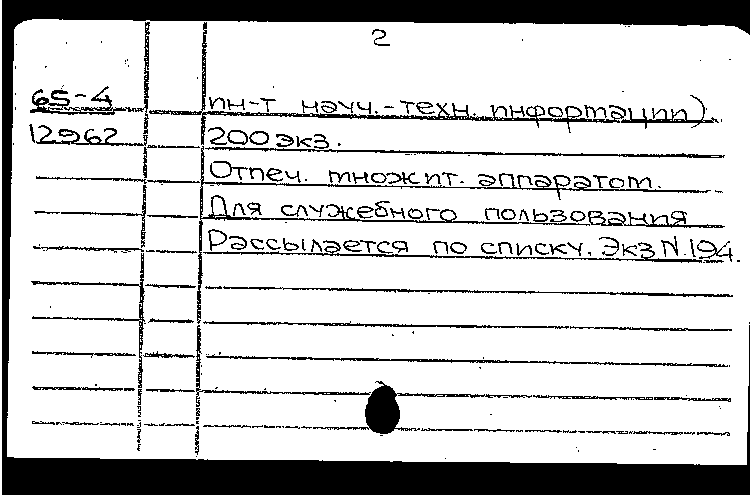 2
65-4 ин-т науч.-техн. информации).
12962 200 экз.
Отпеч. множит. аппаратом.
Для служебного пользования
Рассылается по списку. Экз N.194.